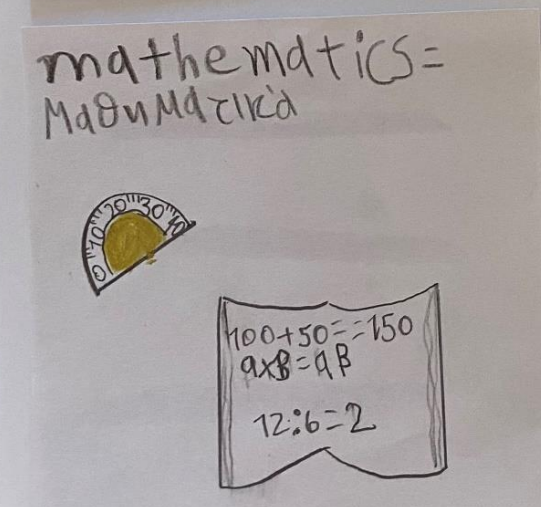 mathematics=
Μαθηματικά
0 10 20 30 40
100+50==150
αxβ=αβ
12:6=2